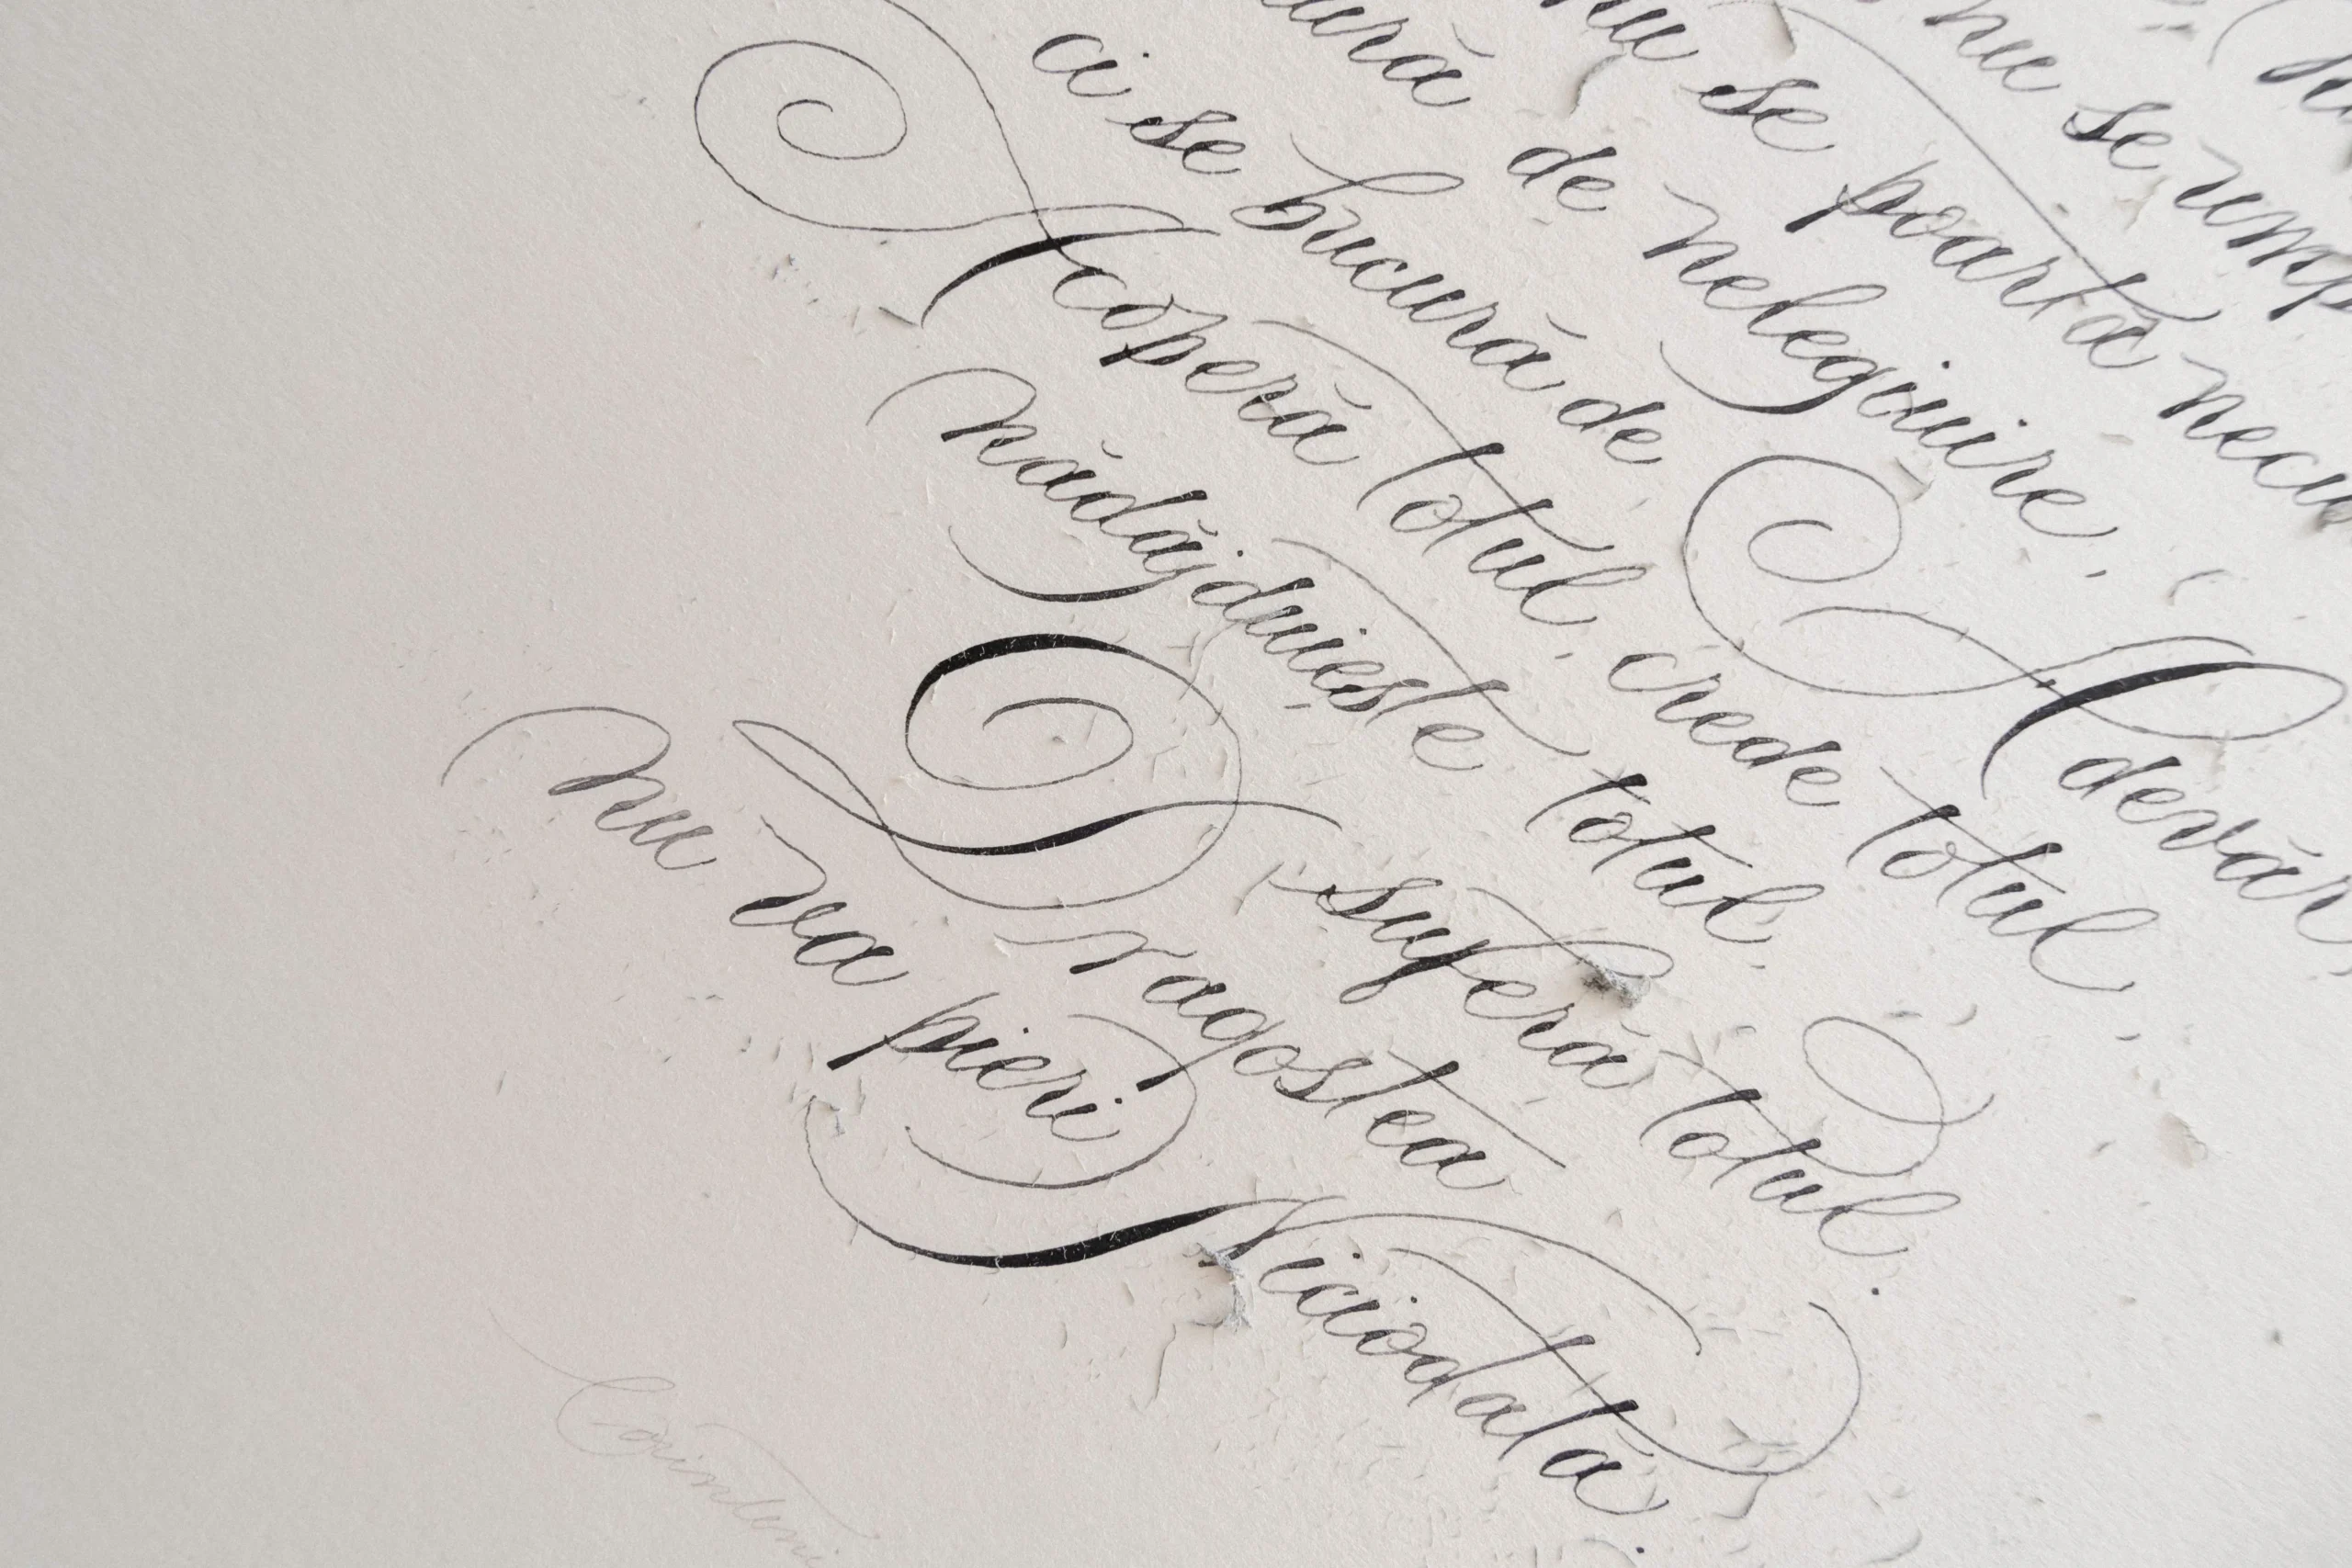 nu se
nu se poartă
de nelegiuire,
ci se bucură de Adevăr
Acoperă totul, crede totul,
nădăjduiește totul,
suferă totul.
Dragostea
nu va pieri Niciodată.
Corinteni